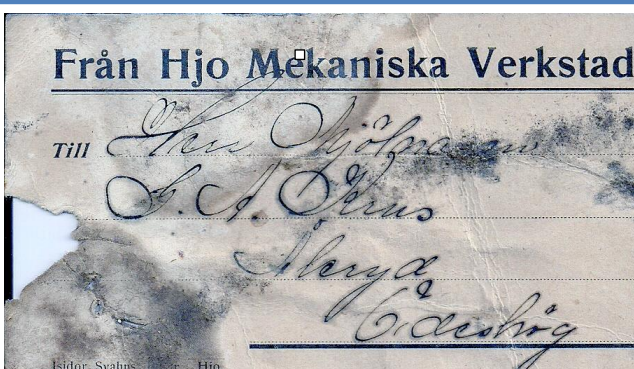 Från Hjo Mekaniska Verkstad
Till Herr Mjölnaren
G. A. Krus
Åleryd
Ödeshög
Isidor Svahns Hjo